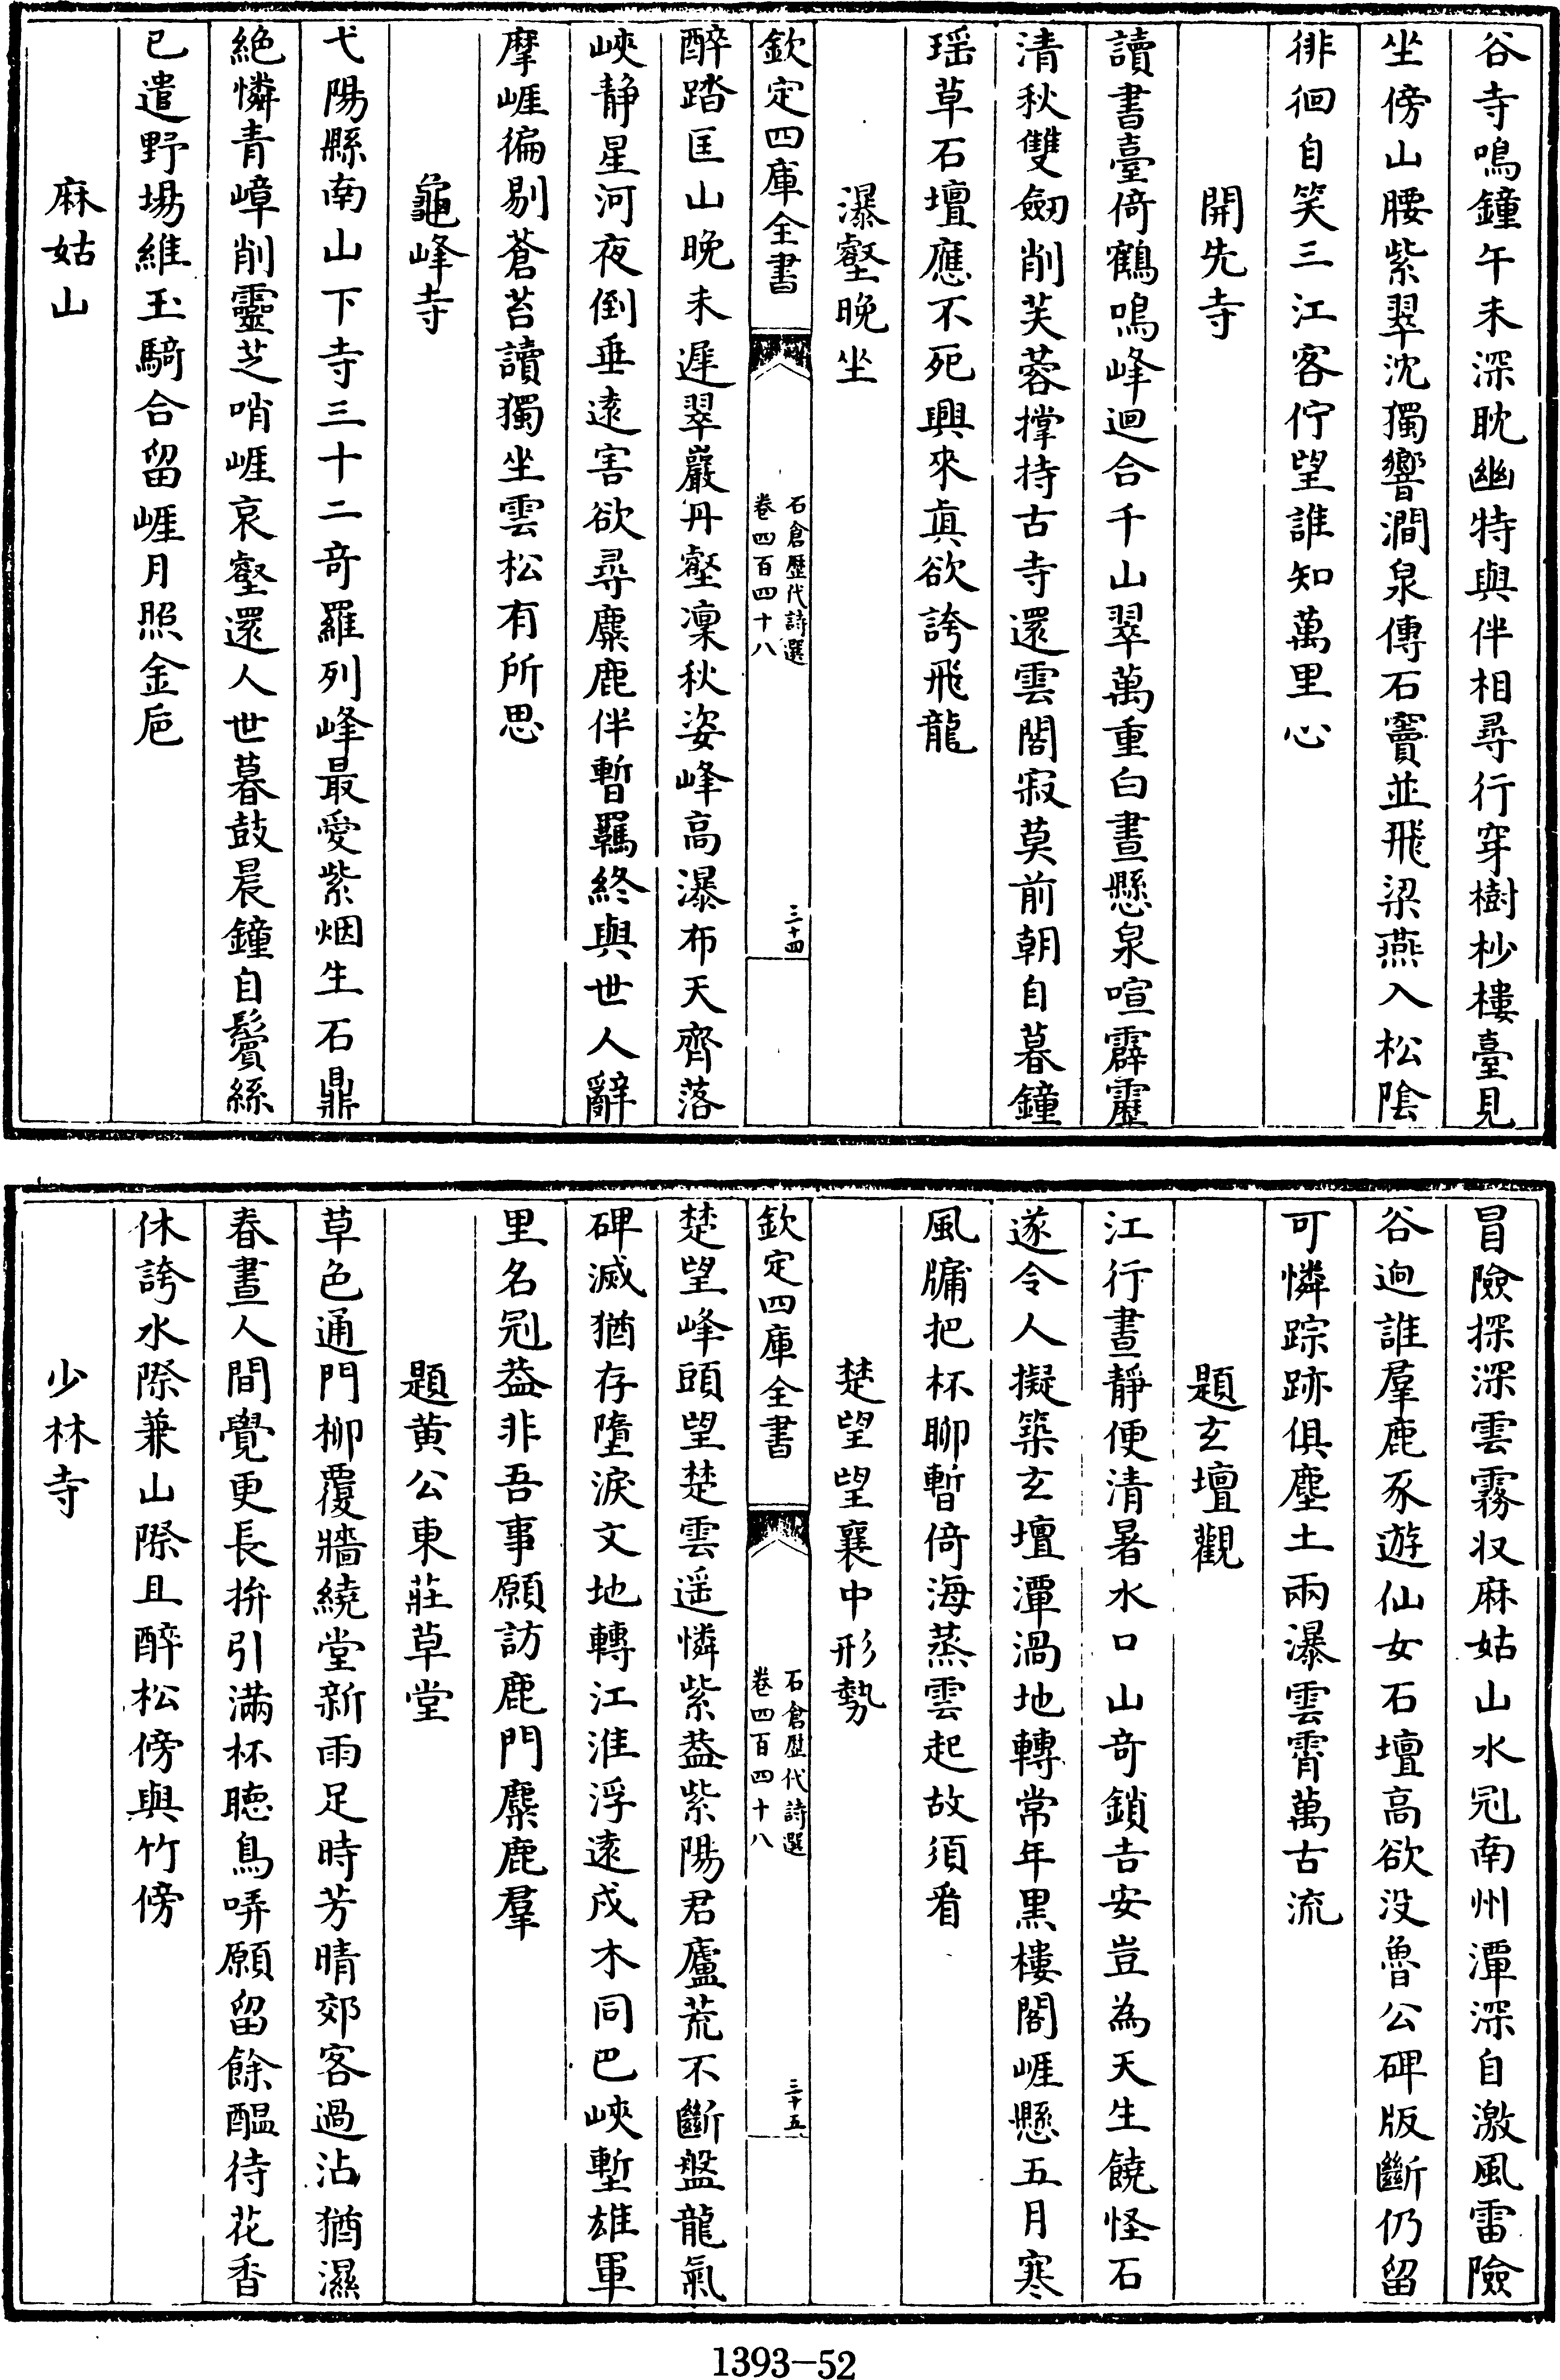 谷寺鳴鐘午未深耽幽特與伴相尋行穿樹杪樓臺見
坐傍山腰紫翠沈獨響澗泉傳石竇並飛梁燕入松陰
徘徊自笑三江客佇望誰知萬里心
開先寺
讀書臺倚鶴鳴峰迴合千山翠萬重白晝懸泉喧霹靂
清秋雙劒削芙蓉撑持古寺還雲閣寂莫前朝自暮鐘
瑶草石壇應不死興來真欲誇飛龍
瀑壑晚坐
欽定四庫全書
石倉歷代詩選
卷四百四十八
三十四
醉踏匡山晚未遲翠巖丹壑凜秋姿峰高瀑布天齊落
峽静星河夜倒垂遠害欲尋麋鹿伴暫羈終與世人辭
摩崕徧剔蒼苔讀獨坐雲松有所思
龜峰寺
弋陽縣南山下寺三十二奇羅列峰最愛紫烟生石鼎
絶憐青嶂削靈芝哨崕哀壑還人世暮鼓晨鐘自鬢絲
已遣野場維玉騎合留崕月照金巵
麻姑山
冒險探深雲霧収麻姑山水冠南州潭深自激風雷險
谷逈誰羣鹿豕遊仙女石壇高欲没魯公碑版斷仍留
可憐踪跡俱塵土兩瀑雲霄萬古流
題玄壇觀
江行晝静便清暑水口山奇鎖吉安豈為天生饒怪石
遂令人擬築玄壇潭渦地轉常年黒樓閣崕懸五月寒
風牗把杯聊暫倚海蒸雲起故須看
楚望望襄中形勢
欽定四庫全書
石倉歷代詩選
卷四百四十八
三十五
楚望峰頭望楚雲遥憐紫葢紫陽君廬荒不斷盤龍氣
碑滅猶存墮淚文地轉江淮浮遠戍木同巴峽塹雄軍
里名冠葢非吾事願訪鹿門麋鹿羣
題黄公東莊草堂
草色通門柳覆牆繞堂新雨足時芳晴郊客過沾猶濕
春晝人間覺更長拚引滿杯聴鳥哢願留餘醖待花香
休誇水際兼山際且醉松傍與竹傍
少林寺
1393-52